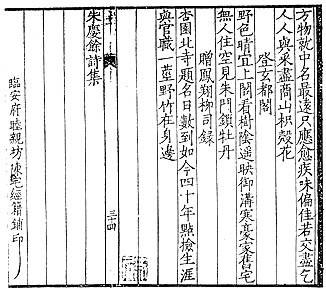 方物就中名最遠只應愈疾味偏佳若交盡乞
人人與采盡商山枳殼花
登玄都閣
野色晴宜上閣看樹陰遥映御溝寒豪家舊宅
無人住空見朱門鎖牡丹
贈鳳翔柳司録
杏園北寺題名日數到如今四十年點檢生涯
與官職一莖野竹在身邊
朱慶餘詩集
三十四
臨安府睦親坊陳宅經籍鋪印